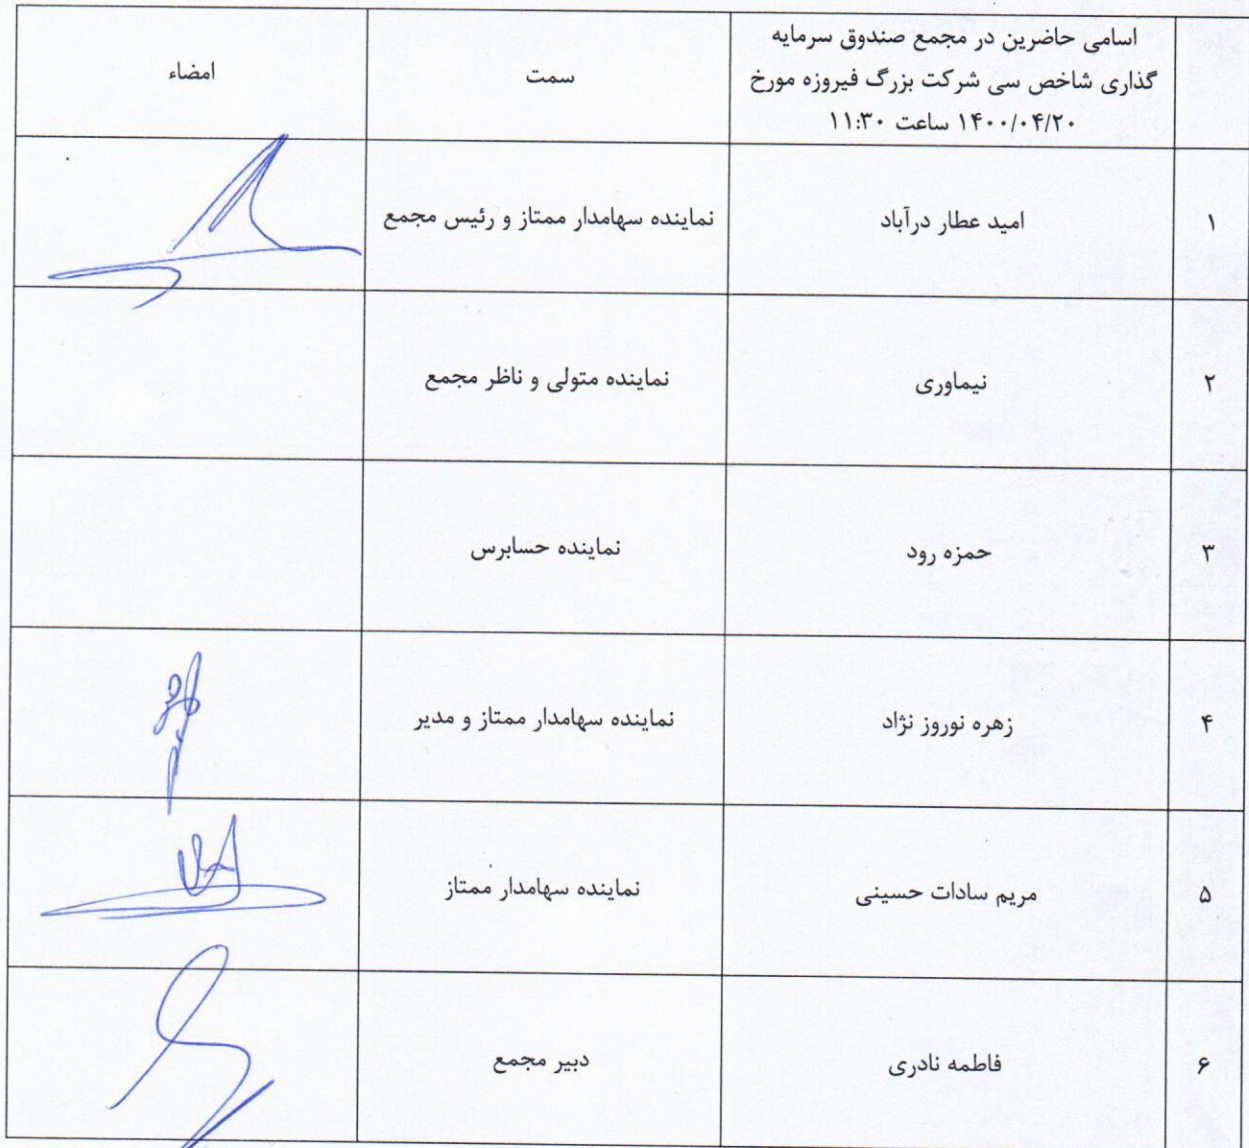 اسامی حاضرین در مجمع صندوق سرمایه
گذاری شاخص سی شرکت بزرگ فیروزه مورخ
۱۴۰۰/۰۴/۲۰ ساعت ۱۱:۳۰
سمت
امضاء
۱ امید عطار درآباد نماینده سهامدار ممتاز و رئیس مجمع
۲ نیماوری نماینده متولی و ناظر مجمع
۳ حمزه رود نماینده حسابرس
۴ زهره نوروز نژاد نماینده سهامدار ممتاز و مدیر
۵ مریم سادات حسینی نماینده سهامدار ممتاز
۶ فاطمه نادری دبیر مجمع